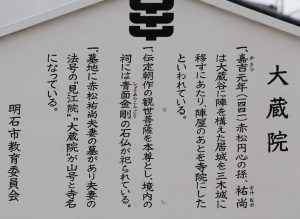 大蔵院
一、嘉吉元年(一四四一)赤松円心の孫、祐尚
は大蔵谷に陣を構えた居城を三木城に
移すにあたり、陣屋のあとを寺院にした
といわれている。
一、伝定朝作の観世菩薩を本尊とし、境内の
祠には青面金剛の石仏が祀られている。
一、墓地に赤松祐尚夫妻の墓があり夫妻の
法号の"見江院"、"大蔵院"が山号と寺名
になっている。
明石市教育委員会